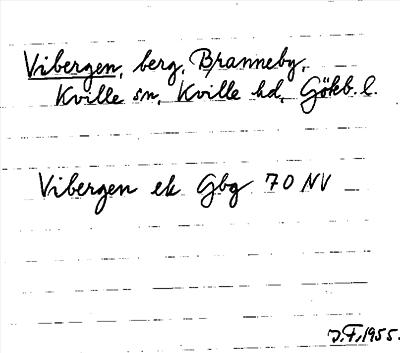 Vibergen, berg, Branneby,
Kville sn, Kville hd, Gökb. l.
Vibergen ek Gbg 70 NV
J.F. 1955.